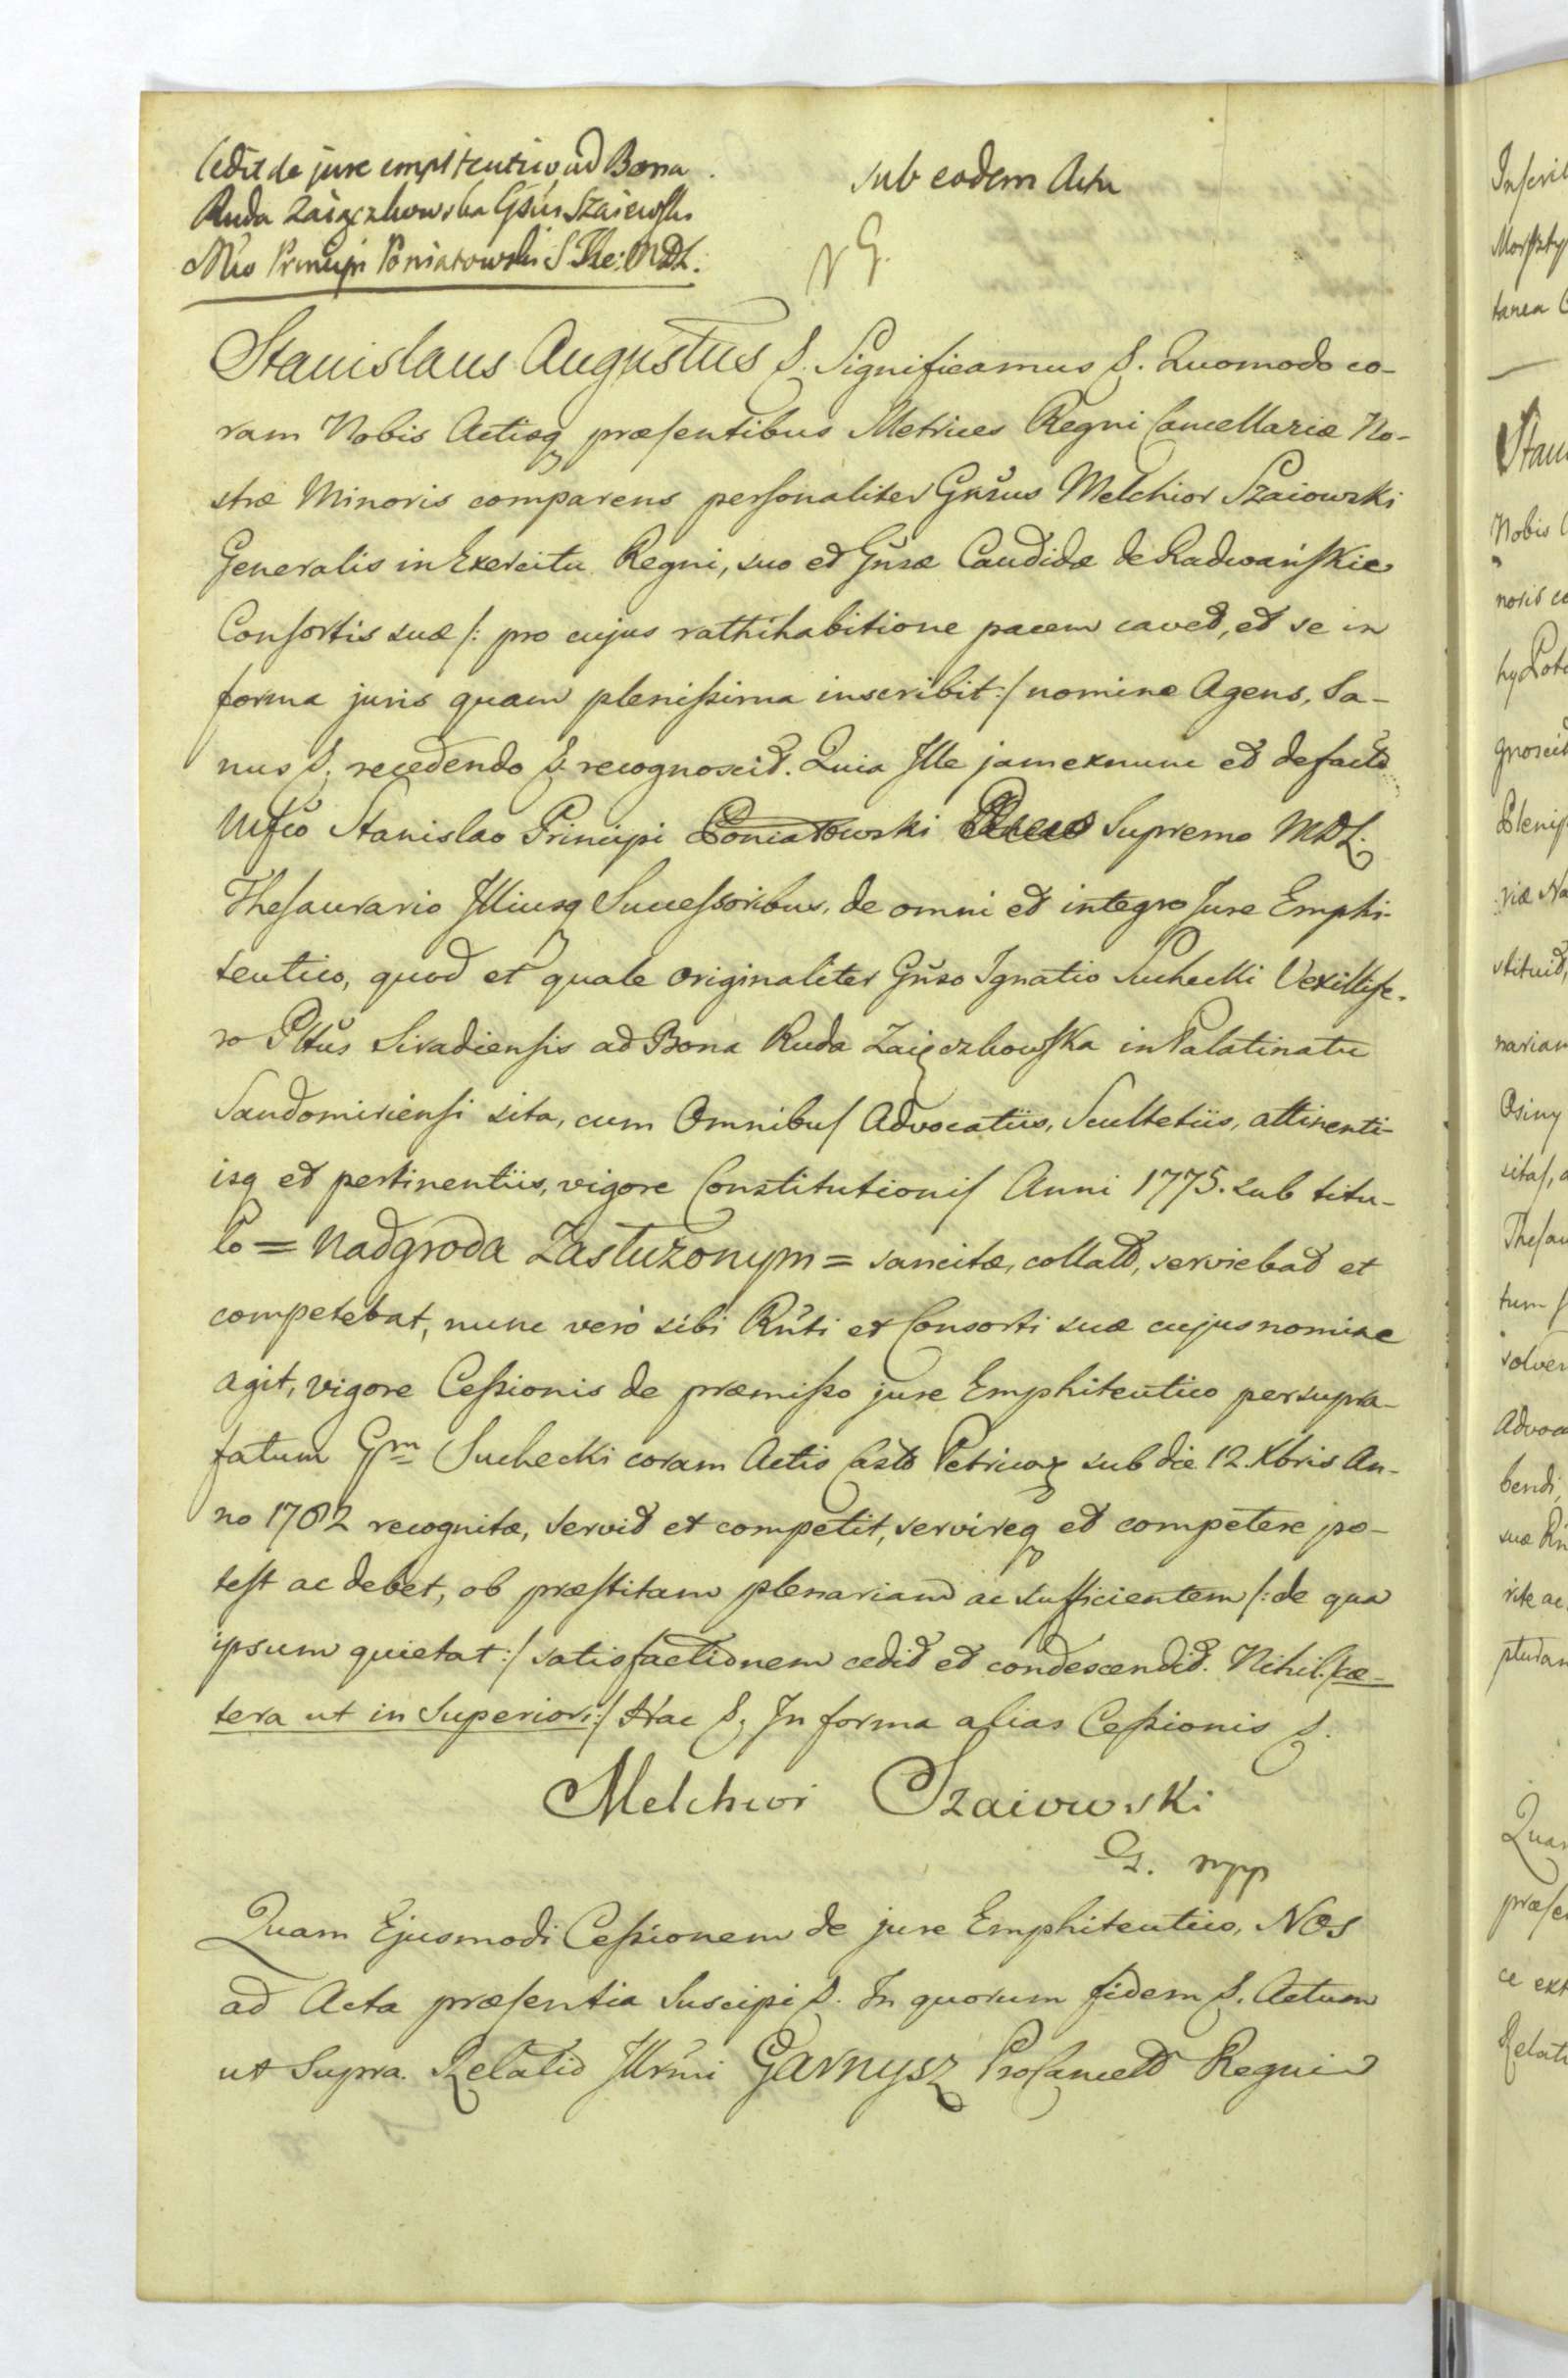 Cedit de jure emphiteutico ad Bona
Ruda Zaiączkowska Gsus Szaiowski
Mco Principi Poniatowski S. The: MDL.
Sub eodem Actu
Stanislaus Augustus &. Significamus &. Quomodo co-
ram Nobis Actisq præsentibus Metrices Regni Cancellariæ No-
stræ Minoris comparens personaliter Gnrsus Melchior Szaiowski
Generalis in Exercitu Regni, suo et Gnsæ Candidæ de Radwańskie
Consortis suæ /: pro cujus rathihabitione pacem cavet, et se in
forma juris quam plenissima inscribit :/ nomine Agens, Sa-
nus &. recedendo &. recognoscit. Quia Ille jam exnunc et defacto
Mfco Stanislao Principi Poniatowski Supremo MDL.
Thesaurario Illiusq Successoribus, de omni et integro Jure Emphi-
teutico, quod et quale originaliter Gnso Ignatio Suchecki Vexillife-
ro Pltus Siradiensis ad Bona Ruda Zaiączkowska in Palatinatu
Sandomiriensi sita, cum Omnibus Advocatiis, Scultetiis, attinenti-
isq et pertinentiis, vigore Constitutionis Anni 1775. sub titu-
lo = Nadgroda Zasłużonym = sancitæ, collatt, serviebat et
competebat, nunc verò sibi Rnti et Consorti suæ cujus nomine
agit, vigore Cessionis de præmisso jure Emphiteutico per supra-
fatum Gm Suchecki coram Actis Castr Petricov sub die 12. Xbris An-
no 1782 recognitæ, servit et competit, servireq et competere po-
test ac debet, ob præstitam plenariam ac sufficientem /: de qua
ipsum quietat :/ satisfactionem cedit et condescendit. Nihil. /:cæ-
tera ut in Superiori :/ Hac &. In forma alias Cessionis &.
Melchior Szaiowski
G. mpp
Quam Ejusmodi Cessionem de jure Emphiteutico, NOS
ad Acta præsentia Suscipi &. In quorum fidem &. Actum
ut Supra. Relatio Illrmi Garnysz ProCancell Regni